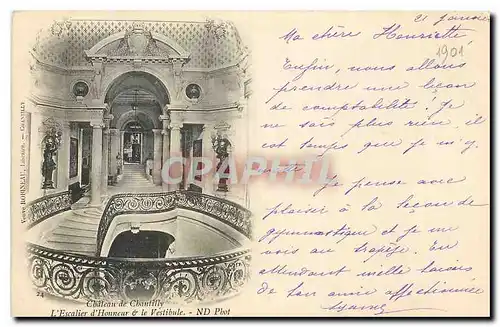 21 janvier
1901
Ma chère Henriette
Enfin, nous allons
prendre une leçon
de comptabilité ! Je
ne sais plus rien, il
est temps que je m'y
mette. Je pense avec
plaisir à la leçon de
gymnastique et je me
vois au trapèze. En
attendant mille baisers
de ton amie affectionnée
Veuve BORNEAU, Libraire. — CHANTILLY
24
Château de Chantilly
L'Escalier d'Honneur & le Vestibule. - ND Phot